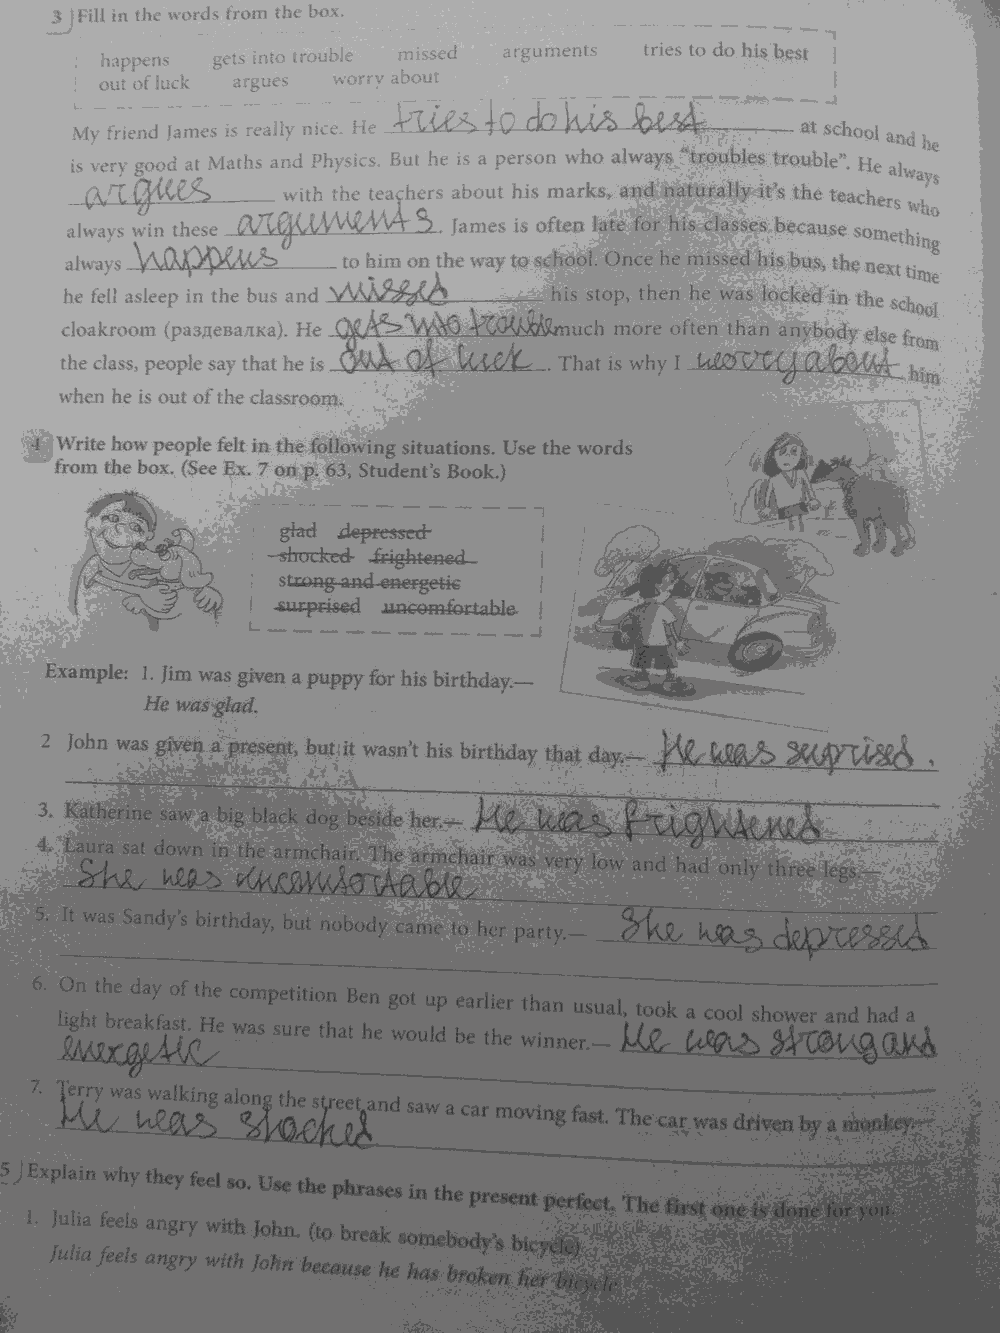 3 Fill in the words from the box.
happens gets into trouble missed arguments tries to do his best
out of luck argues worry about
My friend James is really nice. He tries to do his best at school and he
is very good at Maths and Physics. But he is a person who always "troubles trouble". He always
argues with the teachers about his marks, and naturally it's the teachers who
always win these arguments. James is often late for his classes because something
always happens to him on the way to school. Once he missed his bus, the next time
he fell asleep in the bus and missed his stop, then he was locked in the school
cloakroom (раздевалка). He gets into trouble much more often than anybody else from
the class, people say that he is out of luck. That is why I worry about him
when he is out of the classroom.
4 Write how people felt in the following situations. Use the words
from the box. (See Ex. 7 on p. 63, Student's Book.)
glad depressed
shocked frightened
strong and energetic
surprised uncomfortable
Example: 1. Jim was given a puppy for his birthday.—
He was glad.
2 John was given a present, but it wasn't his birthday that day.— He was suprised.
3. Katherine saw a big black dog beside her.— He was frightened
4. Laura sat down in the armchair. The armchair was very low and had only three legs.—
She was uncomfortable
5. It was Sandy's birthday, but nobody came to her party.— She was depressed
6. On the day of the competition Ben got up earlier than usual, took a cool shower and had a
light breakfast. He was sure that he would be the winner.— He was strong and
energetic
7. Terry was walking along the street and saw a car moving fast. The car was driven by a monkey.—
He was shocked
5 Explain why they feel so. Use the phrases in the present perfect. The first one is done for you.
1. Julia feels angry with John. (to break somebody's bicycle)
Julia feels angry with John because he has broken her bicycle